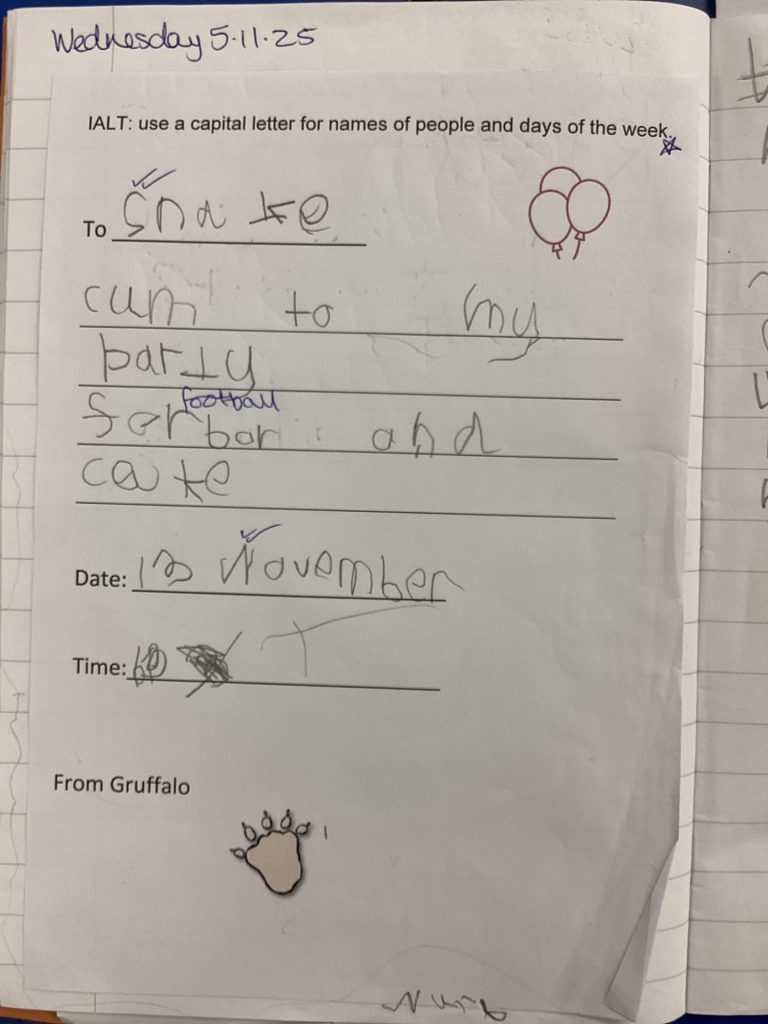 Wednesday 5.11.25
IALT: use a capital letter for names of people and days of the week.
To Snake
cum to my
party
football
for bor and
cake
Date: 13 November
Time:
From Gruffalo